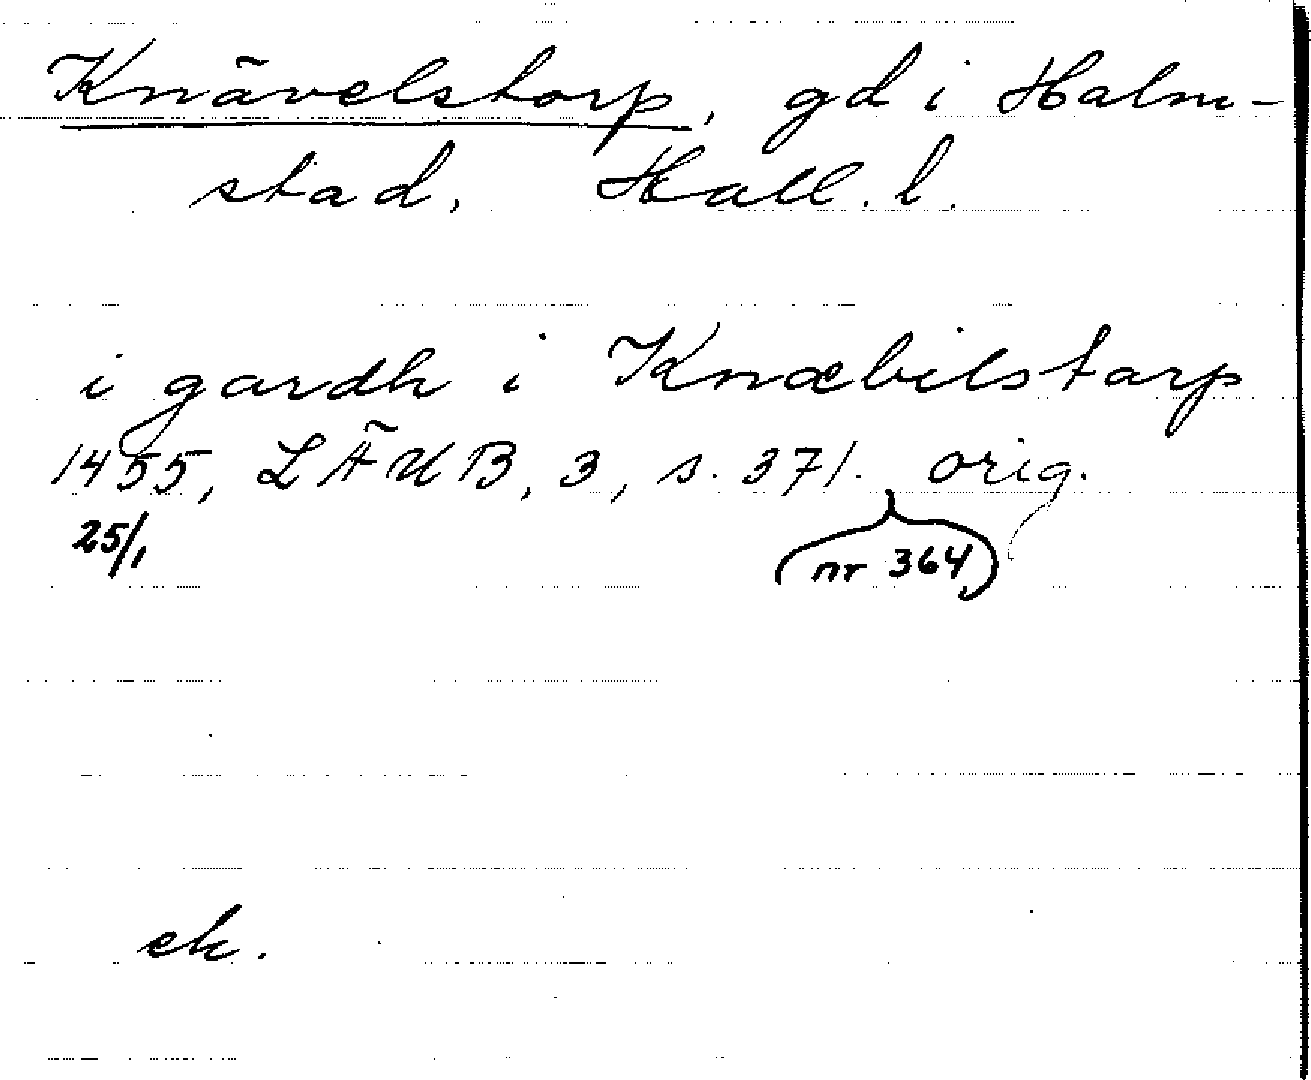 Knävelstorp, gd i Halm-
stad, Hall. l.
i gardh i Knæbilstarp
1455, LÄUB, 3, s. 371. orig.
25/1 (nr 364)
ek.